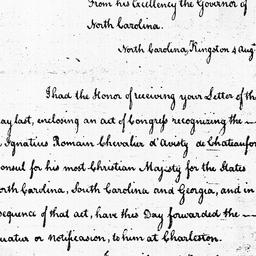 From his Excellency the Governor of
North Carolina.
North Carolina, Kingston 4 Aug
I had the Honor of receiving your Letter of th
ay last, enclosing an act of Congress recognizing the —
Ignatius Romain Chevalier d'Avisty de Chateaufor
onsul for his most Christian Majesty for the States
orth Carolina, South Carolina and Georgia, and in
sequence of that act, have this Day forwarded the —
quatur or notification, to him at Charleston.